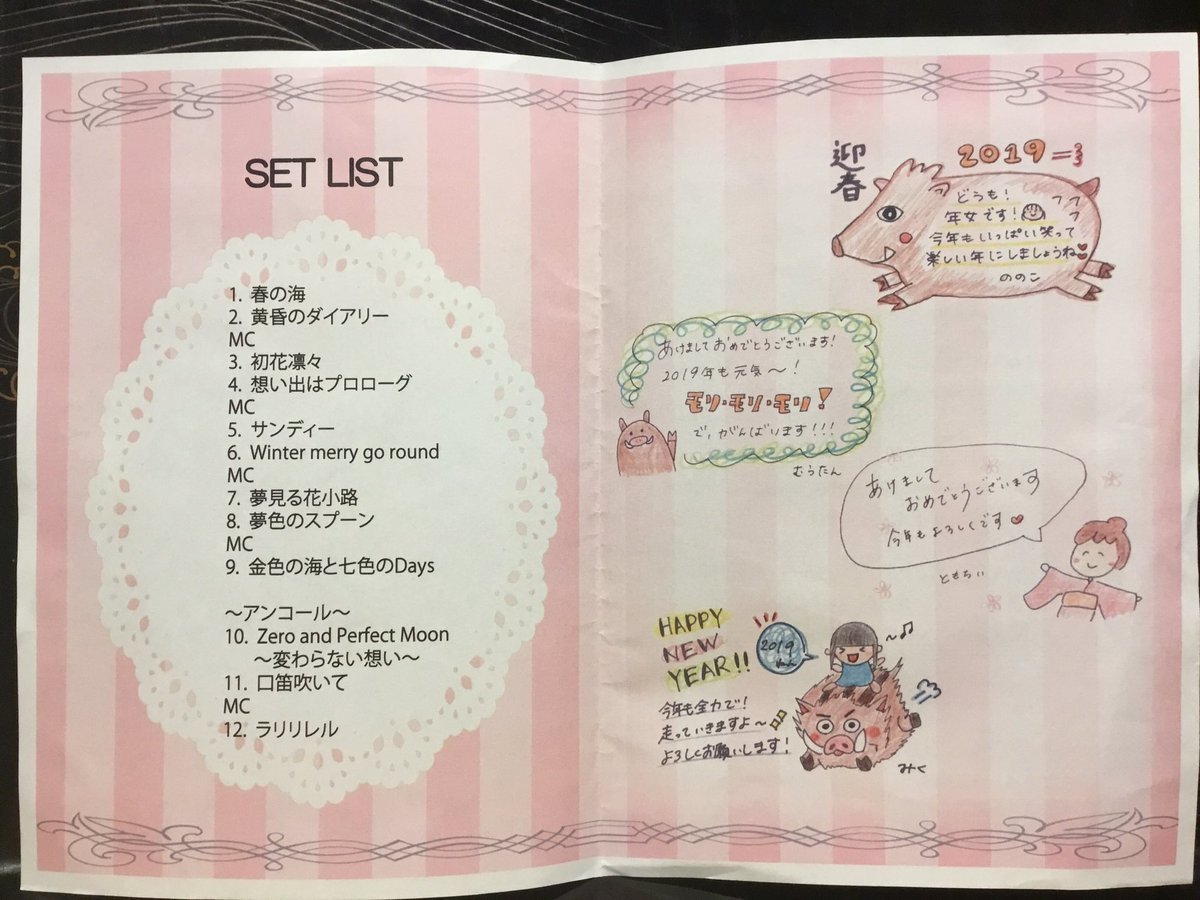 SET LIST
1. 春の海
2. 黄昏のダイアリー
MC
3. 初花凛々
4. 想い出はプロローグ
MC
5. サンディー
6. Winter merry go round
MC
7. 夢見る花小路
8. 夢色のスプーン
MC
9. 金色の海と七色のDays
～アンコール～
10. Zero and Perfect Moon
～変わらない想い～
11. 口笛吹いて
MC
12. ラリリレル
迎春
2019
どうも!
年女です!
今年もいっぱい笑って
楽しい年にしましょうね
ののこ
あけましておめでとうございます!
2019年も元気〜!
モリ・モリ・モリ!
で、がんばります!!!
むうたん
あけまして
おめでとうございます
今年もよろしくです
ともちぃ
HAPPY
NEW
YEAR!!
2019
ねん
今年も全力で!
走っていきますよ〜
よろしくお願いします!
みく